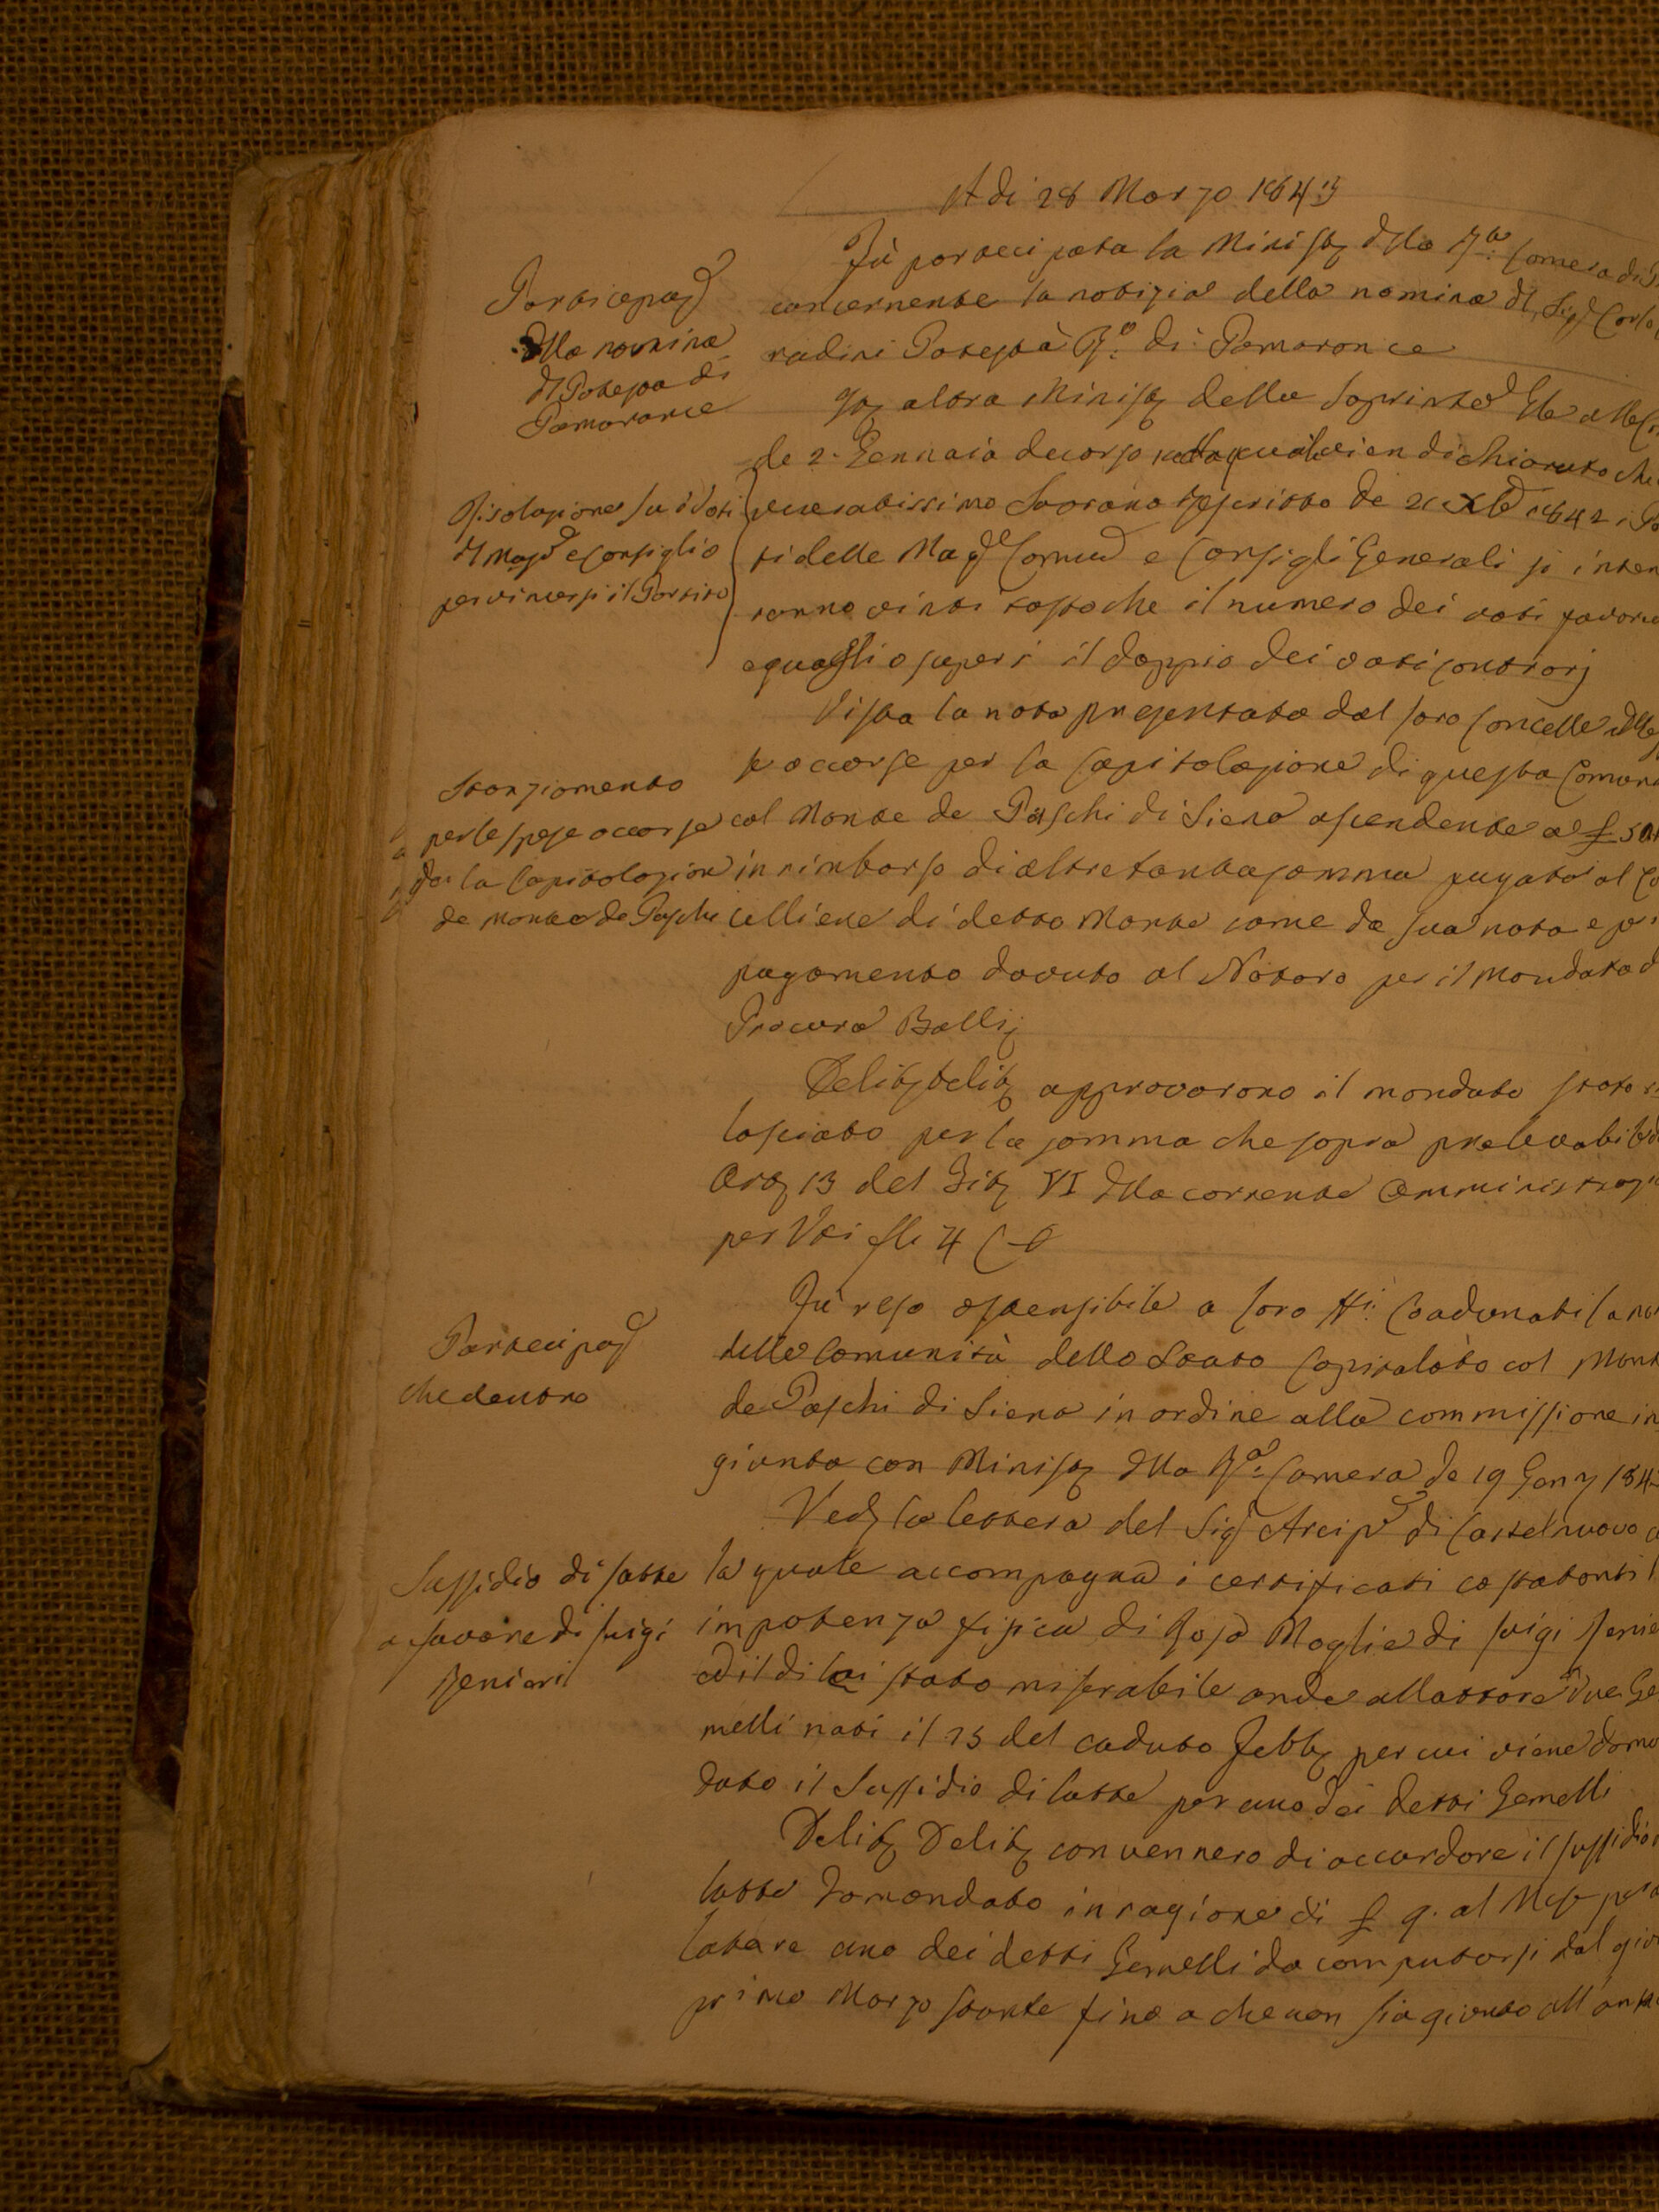 A di 28 Marzo 1843
Fù partecipata la Minist della Ra. Camera di
concernente la notizia della nomina del Sigr Carlo
radini Potestà Ro. di Pomarance
altra Minist della Soprintend Gle alle
de 2. Gennaio decorso nella quale vien dichiarato che
veneratissimo Sovrano Rescritto de 21 Xbre 1842 i
ti delle Mag Comu e Consigli Generali si inten
ranno vinti tosto che il numero dei voti favore
eguagli o superi il doppio dei voti contrarj
Vista la nota presentata dal loro Cancelle delle
se occorse per la Capitolazione di questa Comun
col Monte de Paschi di Siena ascendente a £
in rimborso di altretanta somma pagata al
celliere di detto Monte come da sua nota e
pagamento dovuto al Notaro per il Mandato d
Procura Balli
Delib Delib approvarono il mandato stato ri
lasciato per la somma che sopra prelevabile d
Art 13 del Tit VI della corrente Amministraz
per Vti fli 4 C 0
Fù reso ostensibile a loro SSri. Coadunati la no
delle Comunità dello Stato Capitolato col Mont
de Paschi di Siena in ordine alla commissione in
giunta con Minist della Ra. Camera de 19 Gen 184
Ved la lettera del Sigr Arcip di Castelnuovo
la quale accompagna i certificati costatanti l
impotenza fisica di Rosa Moglie di Luigi
ed il di lei stato miserabile onde allattare due Ge
melli nati il 23 del caduto Febb per cui viene doman
dato il Sussidio di latte per uno dei detti Gemelli
Delib Delib convennero di accordare il sussidio
latte domandato in ragione di £ 9. al Mese per
latare uno dei detti Gemelli da computarsi dal gio
primo Marzo stante fino a che non sia giunto all'
Partecipaz
della nomina
del Potestà di
Pomarance
Risoluzione su i Voti
del Mag e Consiglio
per vincersi il Partito
Stanziamento
per le spese occorse
per la Capitolazione
de Monte de Paschi
Partecipaz
che dentro
Sussidio di latte
a favore di Luigi